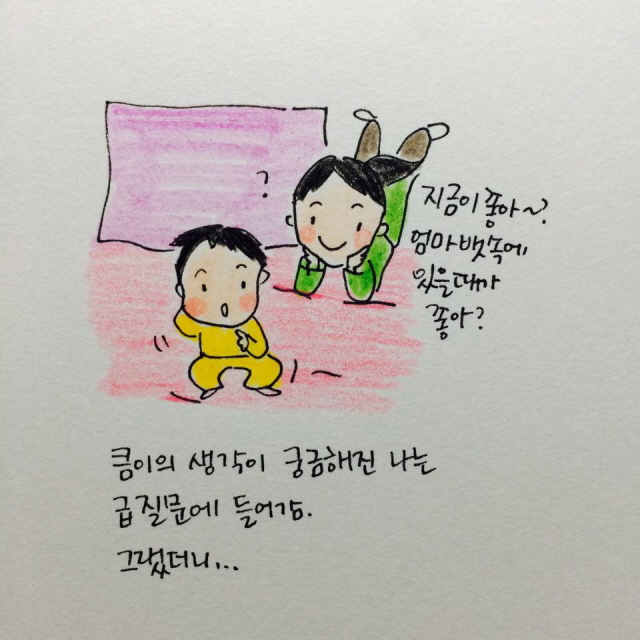 ?
지금이 좋아~?
엄마뱃속에
있을때가
좋아?
큼이의 생각이 궁금해진 나는
급질문에 들어감.
그랬더니...